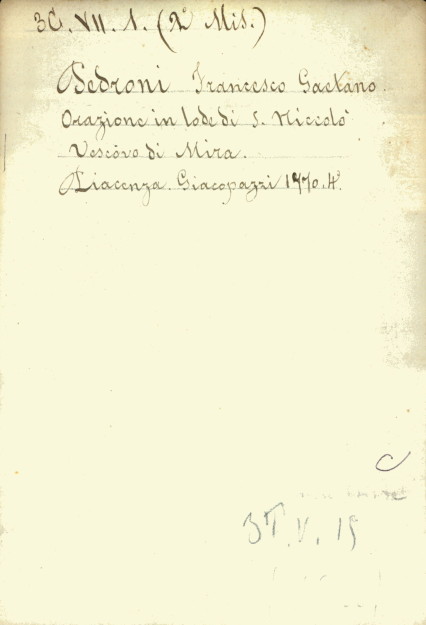 3C. VII. 1. (2º Mis.)
Pedroni Francesco Gaetano.
Orazione in lode di S. Niccolò
Vescovo di Mira.
Piacenza. Giacopazzi 1770. 4º.
C
3T. V. 15